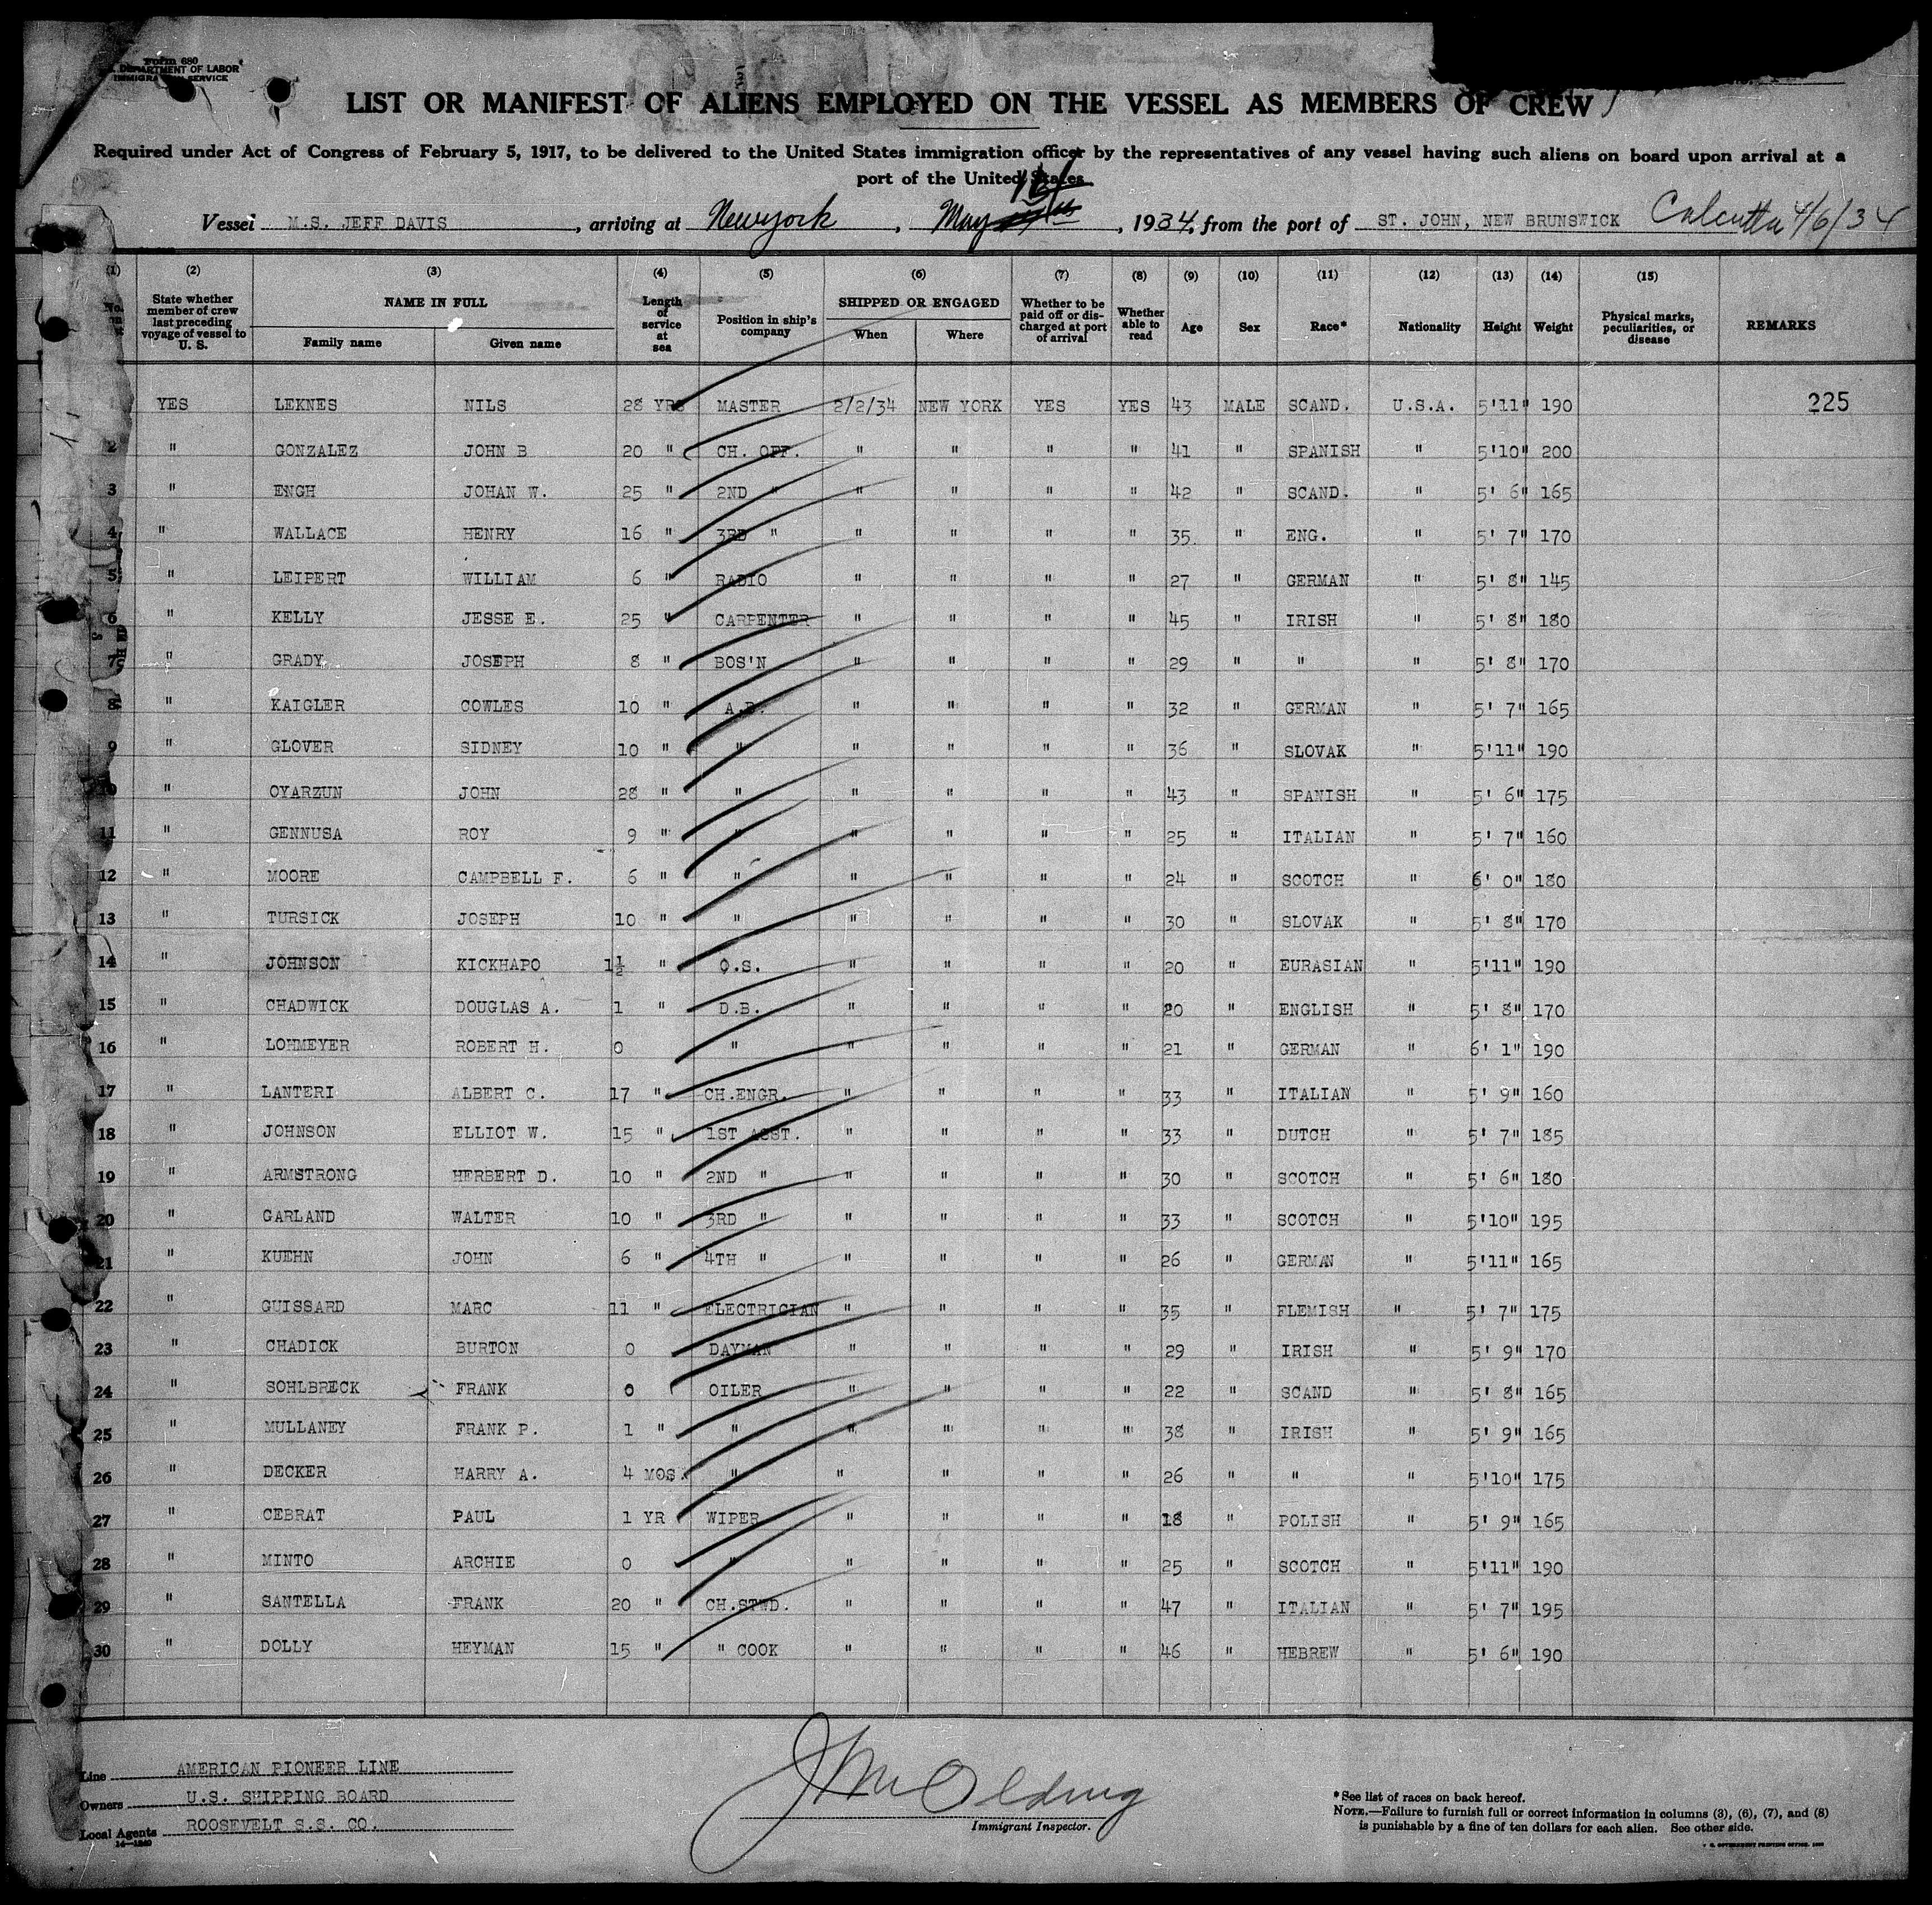 Form 680
DEPARTMENT OF LABOR
SERVICE
LIST OR MANIFEST OF ALIENS EMPLOYED ON THE VESSEL AS MEMBERS OF CREW
Required under Act of Congress of February 5, 1917, to be delivered to the United States immigration officer by the representatives of any vessel having such aliens on board upon arrival at a
port of the United States
Vessel M.S. JEFF DAVIS, arriving at New york, May, 1934, from the port of ST. JOHN, NEW BRUNSWICK Calcutta 4/6/34
(1) (2) (3) (4) (5) (6) (7) (8) (9) (10) (11) (12) (13) (14) (15)
State whether member of crew last preceding voyage of vessel to U. S. NAME IN FULL Family name Given name Length of service at sea Position in ship's company SHIPPED OR ENGAGED When Where Whether to be paid off or discharged at port of arrival Whether able to read Age Sex Race* Nationality Height Weight Physical marks, peculiarities, or disease REMARKS
YES LEKNES NILS 28 YRS MASTER 2/2/34 NEW YORK YES YES 43 MALE SCAND. U.S.A. 5'11" 190 225
2 " GONZALEZ JOHN B 20 " CH. OFF. " " " " 41 " SPANISH " 5'10" 200
3 " ENGH JOHAN W. 25 " 2ND " " " " " 42 " SCAND. " 5' 6" 165
4 " WALLACE HENRY 16 " 3RD " " " " " 35 " ENG. " 5' 7" 170
5 " LEIPERT WILLIAM 6 " RADIO " " " " 27 " GERMAN " 5' 8" 145
6 " KELLY JESSE E. 25 " CARPENTER " " " " 45 " IRISH " 5' 8" 180
7 " GRADY JOSEPH 8 " BOS'N " " " " 29 " " " 5' 8" 170
8 " KAIGLER COWLES 10 " A.B. " " " " 32 " GERMAN " 5' 7" 165
9 " GLOVER SIDNEY 10 " " " " " " 36 " SLOVAK " 5'11" 190
10 " OYARZUN JOHN 28 " " " " " " 43 " SPANISH " 5' 6" 175
11 " GENNUSA ROY 9 " " " " " " 25 " ITALIAN " 5' 7" 160
12 " MOORE CAMPBELL F. 6 " " " " " " 24 " SCOTCH " 6' 0" 180
13 " TURSICK JOSEPH 10 " " " " " " 30 " SLOVAK " 5' 8" 170
14 " JOHNSON KICKHAPO 1½ " O.S. " " " " 20 " EURASIAN " 5'11" 190
15 " CHADWICK DOUGLAS A. 1 " D.B. " " " " 20 " ENGLISH " 5' 8" 170
16 " LOHMEYER ROBERT H. 0 " " " " " 21 " GERMAN " 6' 1" 190
17 " LANTERI ALBERT C. 17 " CH.ENGR. " " " " 33 " ITALIAN " 5' 9" 160
18 " JOHNSON ELLIOT W. 15 " 1ST ASST. " " " " 33 " DUTCH " 5' 7" 185
19 " ARMSTRONG HERBERT D. 10 " 2ND " " " " " 30 " SCOTCH " 5' 6" 180
20 " GARLAND WALTER 10 " 3RD " " " " " 33 " SCOTCH " 5'10" 195
21 " KUEHN JOHN 6 " 4TH " " " " " 26 " GERMAN " 5'11" 165
22 " GUISSARD MARC 11 " ELECTRICIAN " " " " 35 " FLEMISH " 5' 7" 175
23 " CHADICK BURTON 0 DAYMAN " " " " 29 " IRISH " 5' 9" 170
24 " SOHLBRECK FRANK 0 OILER " " " " 22 " SCAND " 5' 8" 165
25 " MULLANEY FRANK P. 1 " " " " " " 38 " IRISH " 5' 9" 165
26 " DECKER HARRY A. 4 MOS. " " " " " 26 " " " 5'10" 175
27 " CEBRAT PAUL 1 YR WIPER " " " " 18 " POLISH " 5' 9" 165
28 " MINTO ARCHIE 0 " " " " " 25 " SCOTCH " 5'11" 190
29 " SANTELLA FRANK 20 " CH.STWD. " " " " 47 " ITALIAN " 5' 7" 195
30 " DOLLY HEYMAN 15 " " COOK " " " " 46 " HEBREW " 5' 6" 190
Line AMERICAN PIONEER LINE
Owners U.S. SHIPPING BOARD
Local Agents ROOSEVELT S.S. CO.
14—1240
Immigrant Inspector.
*See list of races on back hereof.
NOTE.—Failure to furnish full or correct information in columns (3), (6), (7), and (8)
is punishable by a fine of ten dollars for each alien. See other side.